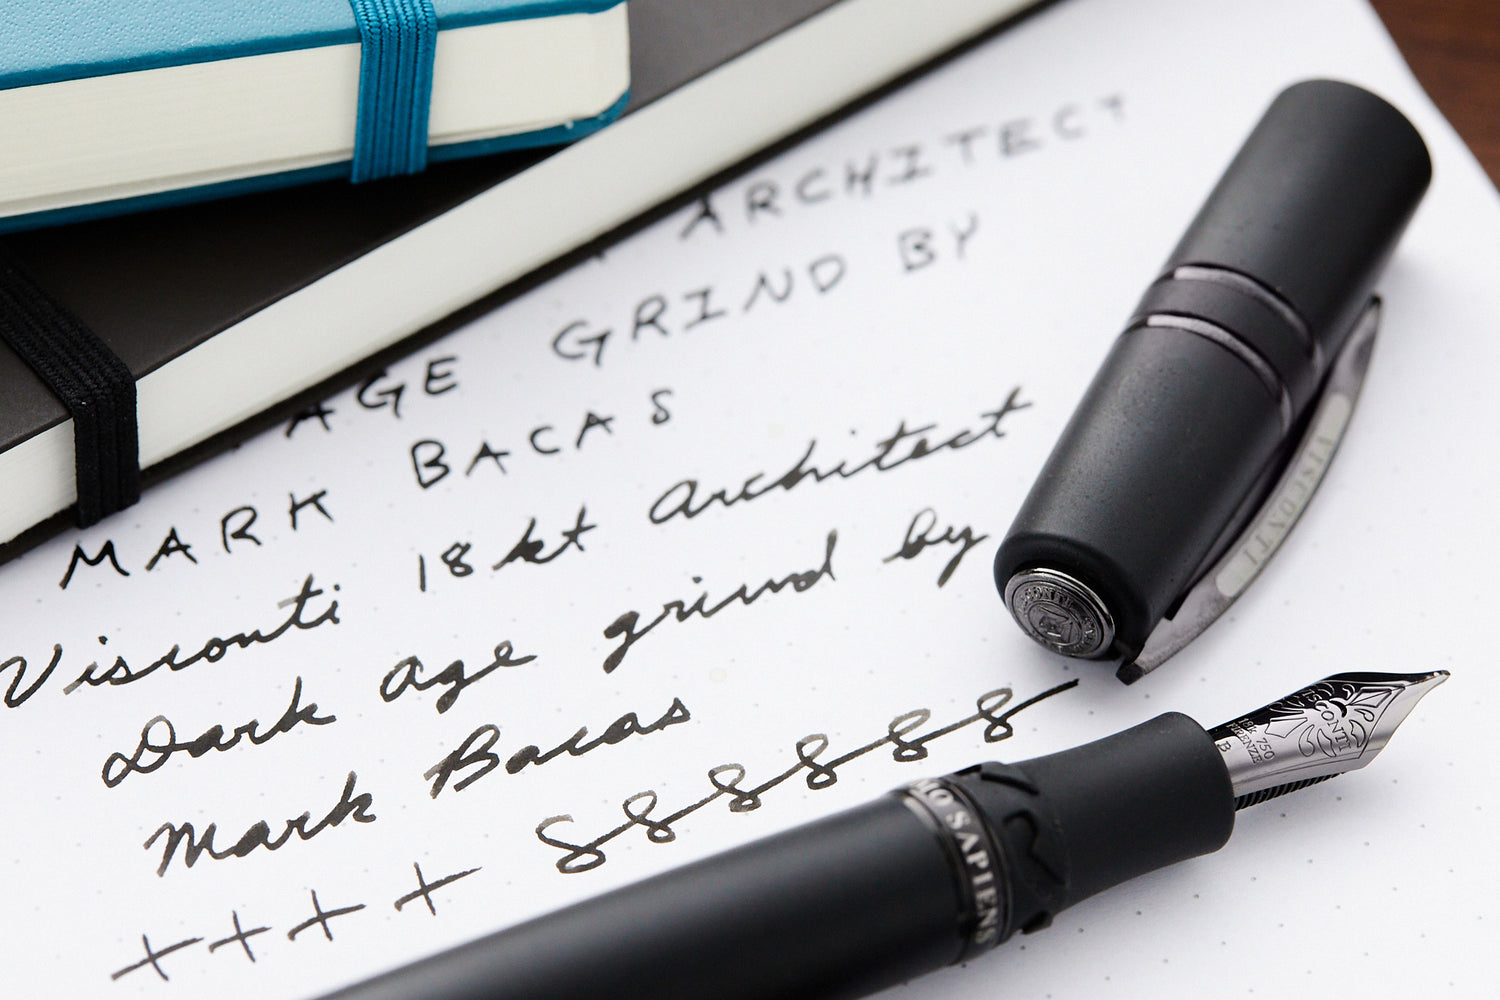 ARCHITECT
AGE GRIND BY
MARK BACAS
Visconti 18kt Architect
Dark Age grind by
Mark Bacas
++++ 8 8 8 8 8 8
VISCONTI
VISCONTI
18k 750
FIRENZE
B
SAPIENS